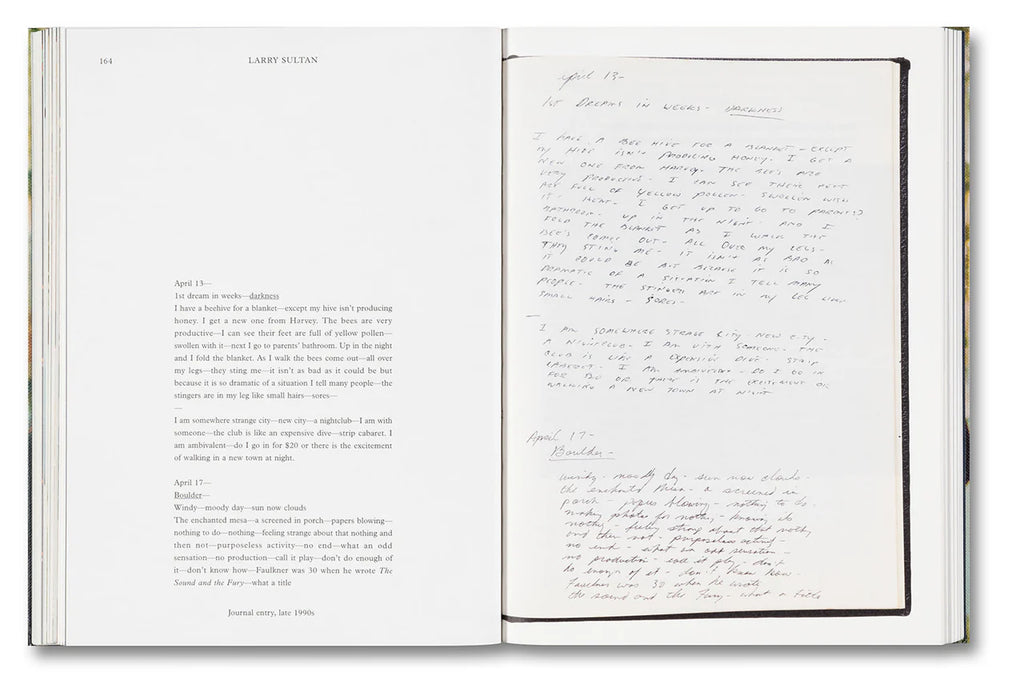 164
LARRY SULTAN
April 13—
1st dream in weeks—darkness
I have a beehive for a blanket—except my hive isn't producing
honey. I get a new one from Harvey. The bees are very
productive—I can see their feet are full of yellow pollen—
swollen with it—next I go to parents' bathroom. Up in the night
and I fold the blanket. As I walk the bees come out—all over
my legs—they sting me—it isn't as bad as it could be but
because it is so dramatic of a situation I tell many people—the
stingers are in my leg like small hairs—sores—
—
I am somewhere strange city—new city—a nightclub—I am with
someone—the club is like an expensive dive—strip cabaret. I
am ambivalent—do I go in for $20 or there is the excitement
of walking in a new town at night.
April 17—
Boulder—
Windy—moody day—sun now clouds
The enchanted mesa—a screened in porch—papers blowing—
nothing to do—nothing—feeling strange about that nothing and
then not—purposeless activity—no end—what an odd
sensation—no production—call it play—don't do enough of
it—don't know how—Faulkner was 30 when he wrote The
Sound and the Fury—what a title
Journal entry, late 1990s
April 13-
1ST DREAMS IN WEEKS - DARKNESS
I HAVE A BEE HIVE FOR A BLANKET - EXCEPT
MY HIVE ISN'T PRODUCING HONEY. I GET A
NEW ONE FROM HARVEY. THE BEES ARE
VERY PRODUCTIVE - I CAN SEE THEIR FEET
ARE FULL OF YELLOW POLLEN - SWOLLEN WITH
IT - NEXT - I GET UP TO GO TO PARENTS
BATHROOM - UP IN THE NIGHT - AND I
FOLD THE BLANKET AS I WALK THE
BEES COME OUT - ALL OVER MY LEGS -
THEY STING ME - IT ISN'T AS BAD AS
IT COULD BE BUT BECAUSE IT IS SO
DRAMATIC OF A SITUATION I TELL MANY
PEOPLE - THE STINGERS ARE IN MY LEG LIKE
SMALL HAIRS - SORES -
—
I AM SOMEWHERE STRAGE CITY - NEW CITY -
A NIGHTCLUB - I AM WITH SOMEONE - THE
CLUB IS LIKE A EXPENSIVE DIVE - STRIP
CABARET - I AM AMBIVALENT - DO I GO IN
FOR $20 OR THERE IS THE EXCITEMENT OF
WALKING A NEW TOWN AT NIGHT
April 17-
Boulder-
windy - moody day - sun now clouds -
the enchanted Mesa - a screened in
porch - papers blowing - nothing to do -
making photos for nothing - knowing its
nothing - feeling strange about that nothing
and then not - purposeless activity -
no end - what an odd sensation -
no production - call it play - don't
do enough of it - don't know how -
Faulkner was 30 when he wrote
the sound and the Fury - what a title